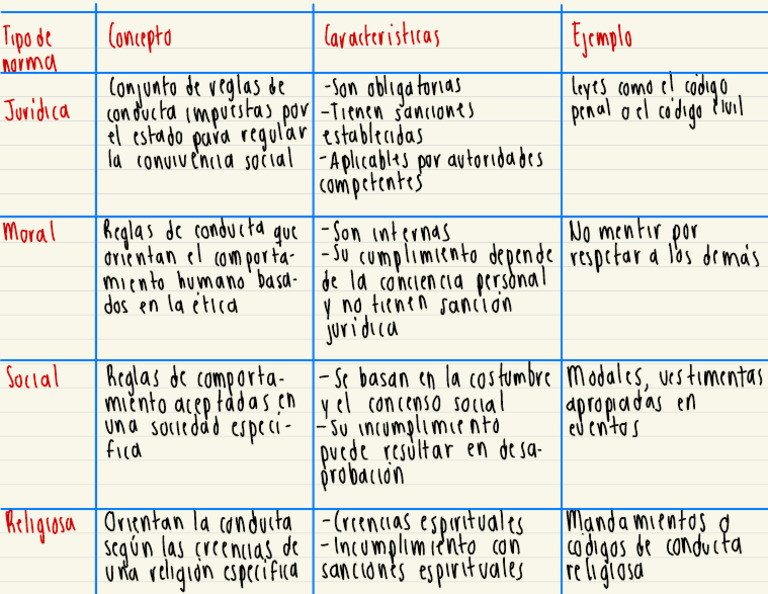 Tipo de norma
Concepto
Caracteristicas
Ejemplo
Jurídica
Conjunto de reglas de
conducta impuestas por
el estado para regular
la convivencia social
-Son obligatorias
-Tienen sanciones
establecidas
-Aplicables por autoridades
competentes
Leyes como el código
penal o el código civil
Moral
Reglas de conducta que
orientan el comporta-
miento humano basa-
dos en la ética
-Son internas
-Su cumplimiento depende
de la conciencia personal
y no tienen sanción
jurídica
No mentir por
respetar a los demás
Social
Reglas de comporta-
miento aceptadas en
una sociedad especí-
fica
-Se basan en la costumbre
y el concenso social
-Su incumplimiento
puede resultar en desa-
probación
Modales, vestimentas
apropiadas en
eventos
Religiosa
Orientan la conducta
según las creencias de
una religión específica
-Creencias espirituales
-Incumplimiento con
sanciones espirituales
Mandamientos o
códigos de conducta
religiosa